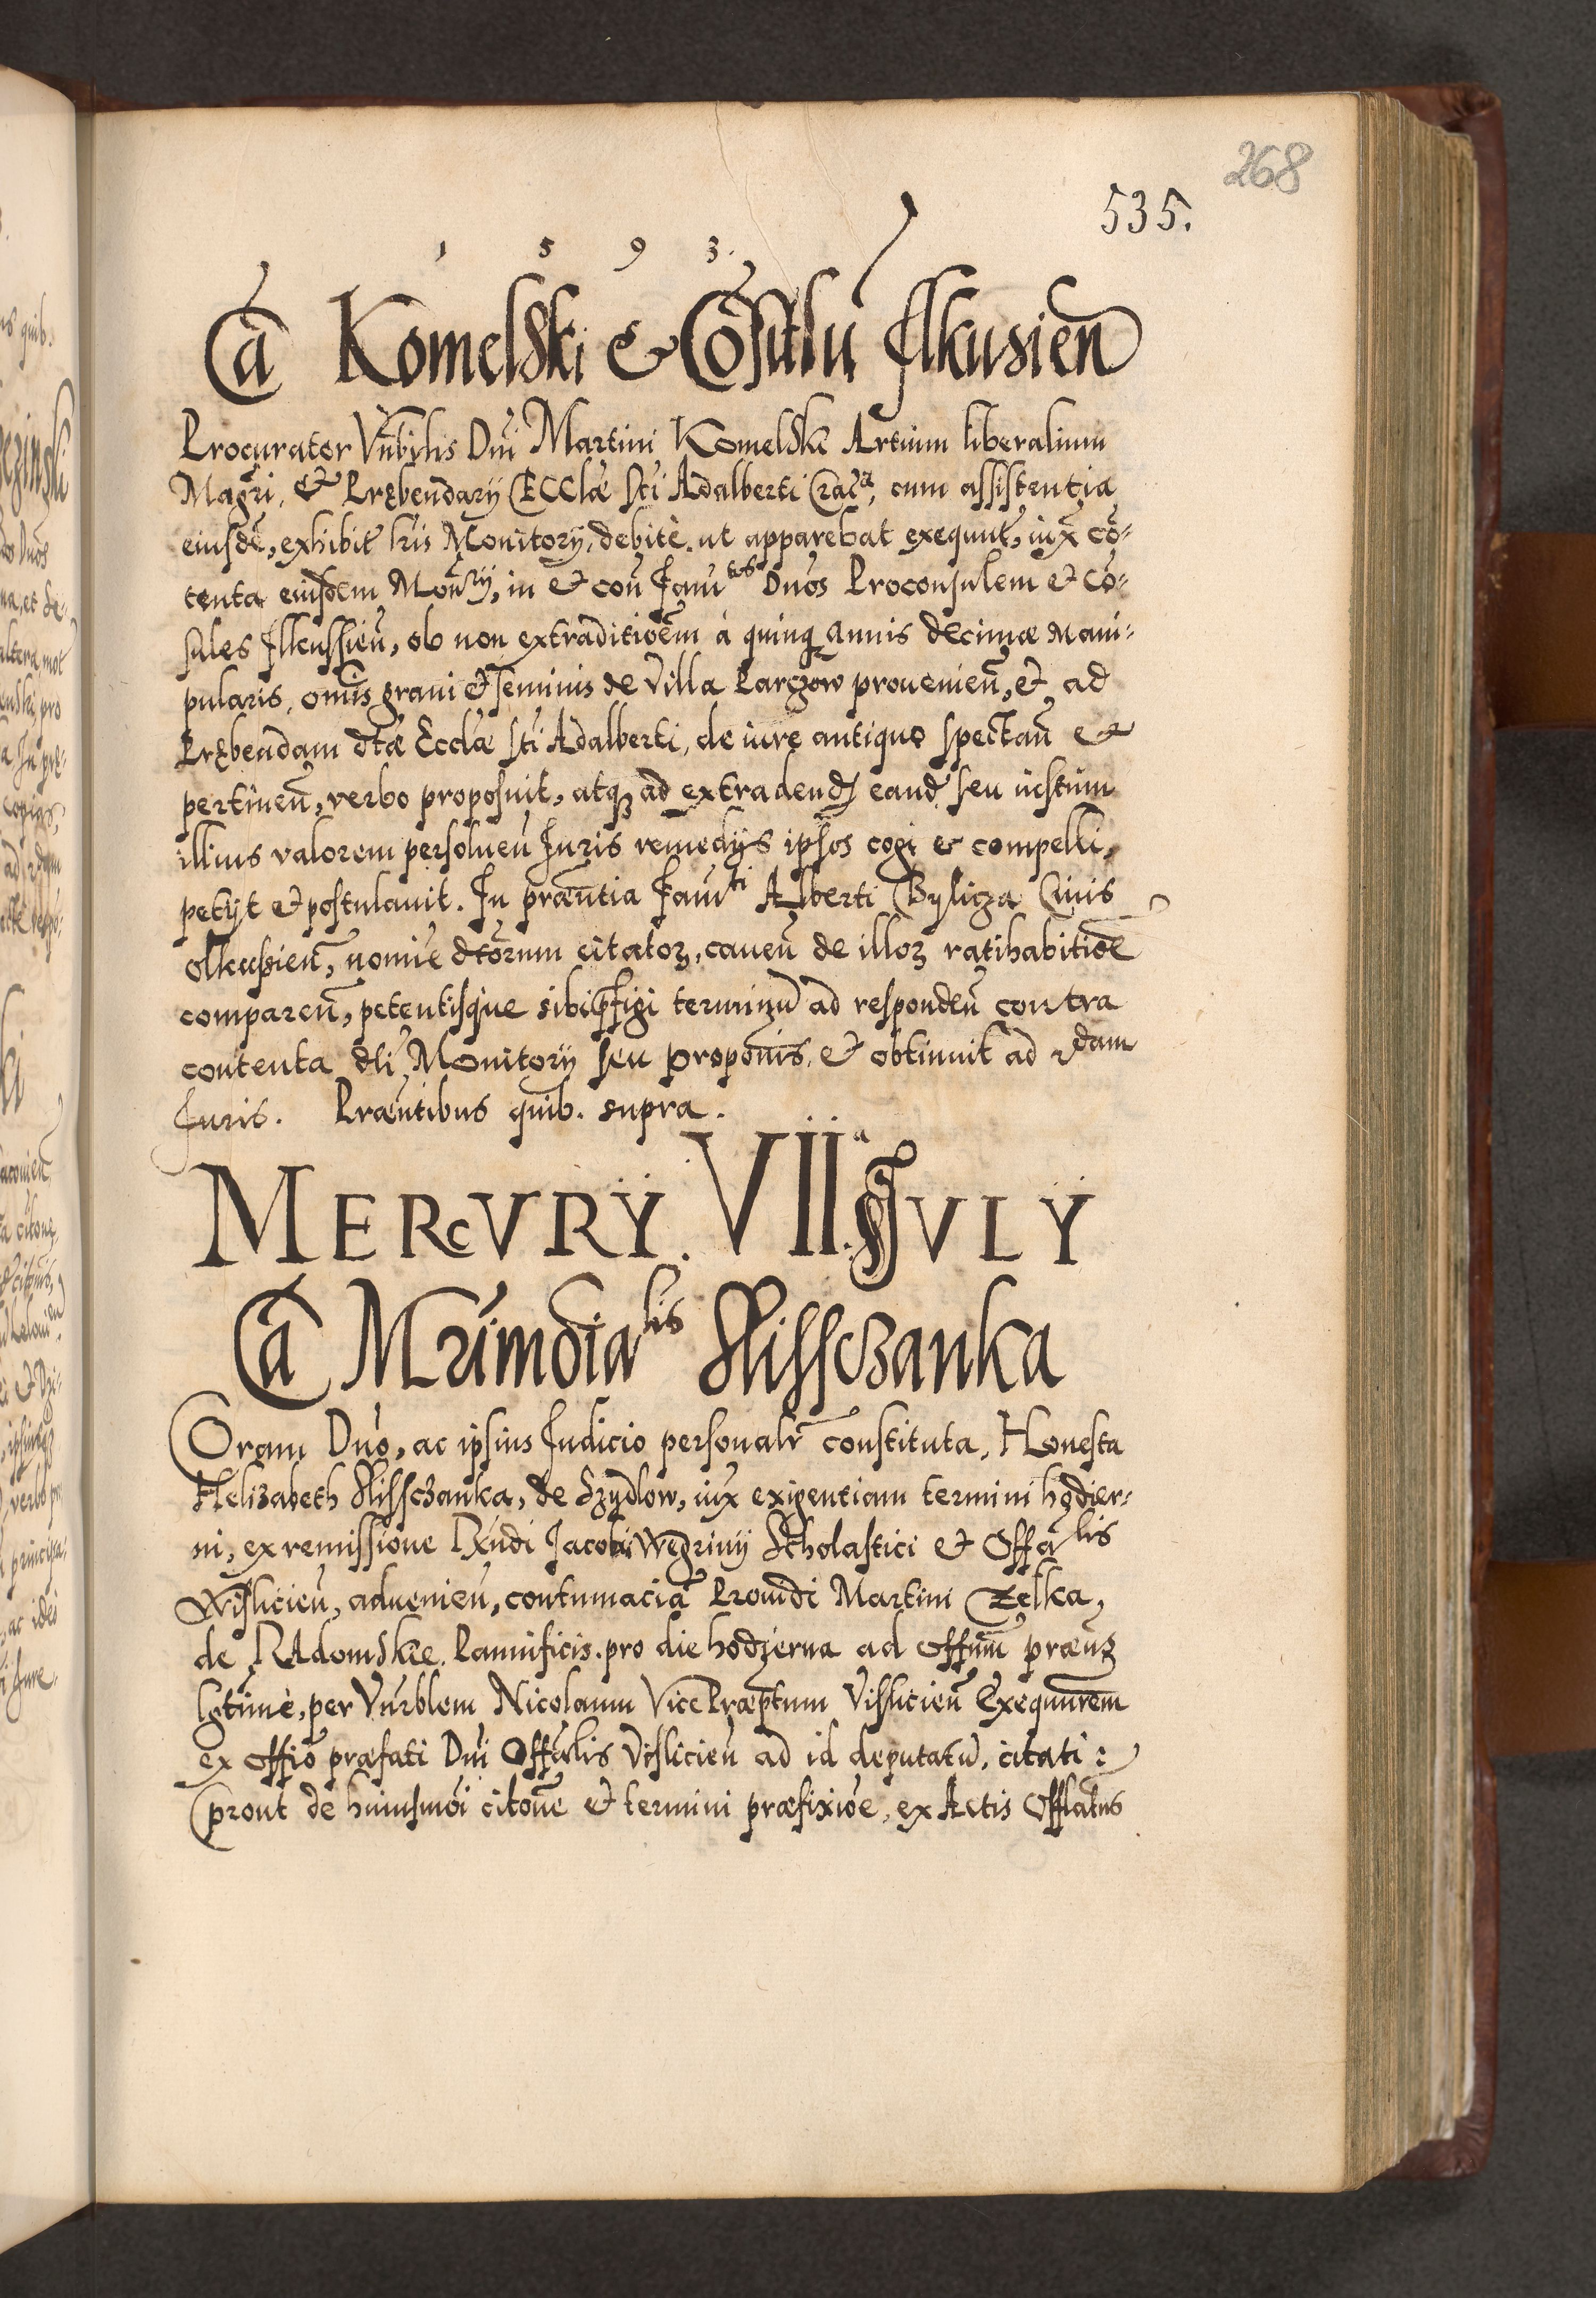 268
535.
1 5 9 3.
Cã Komelski & Cõsulu Ilkusien̄
Procurator Vn̄bilis Dn̄i Martini Komelski Artium liberalium
Magr̄i, & Prębendarÿ Ecclæ Sc̄i Adalberti Crac̄ª, cum assistentia
eiusdē, exhibit lr̄is Monitorÿ, debitè, ut apparebat exequut̄, iux̄ cō-
tenta eiusdem Mon̄rÿ, in et con̄ Fam̄tos Dn̄os Proconsulem et Cō-
sules Ilkussien̄, ob non extraditiōem à quinq̨ annis decimæ mani-
pularis, om̄is grani et seminis de Villa Parczow prouenien̄, et ad
Prębendam dc̄tæ Ecclæ Sc̄i Adalberti, de iure antiquo spectan̄ et
pertinen̄, verbo proposuit, atqꝫ ad extradend eand seu iustum
illius valorem persoluen̄ Juris remedÿs ipsos cogi et compelli,
petÿt et postulauit. In præn̄tia Fam̄ti Alberti Byliqa Ciuis
olkussien̄, nomīe dctōrum citatoꝝ, cauen̄ de illoꝝ ratihabitiōe
comparen̄, petentisque sibi p̄figi terminū ad responden̄ contra
contenta dc̄i Monitorÿ seu propōnis, et obtinuit ad 2dam
Juris. Præn̄tibus quib. supra.
MERCVRŸ. VIIª. JVLŸ
Cã Mr̄imōialis Slissczanka
Coram Dn̄o, ac ipsius Judicio personalr̄ constituta, Honesta
Helizabeth Slissczanka, de Szydlow, iux̄ exigentiam termini hodier-
ni, ex remissione Rn̄di Jacobi Węgrinÿ Scholastici et Offālis
Wislicien̄, aduenien̄, contumaciā Prouidi Martini Zelka,
de Radomskie. Pannificis. pro die hodierna ad Offūm præn̄s
lgtimè, per Vn̄rblem Nicolaum VicePræp̄tum Vislicien̄ Exequūrem
ex Offiō præfati Dn̄i Offālis Vislicien̄ ad id deputatū, citati:
prout de huiusmōi citōne et termini præfixiōe, ex Actis Offlatus